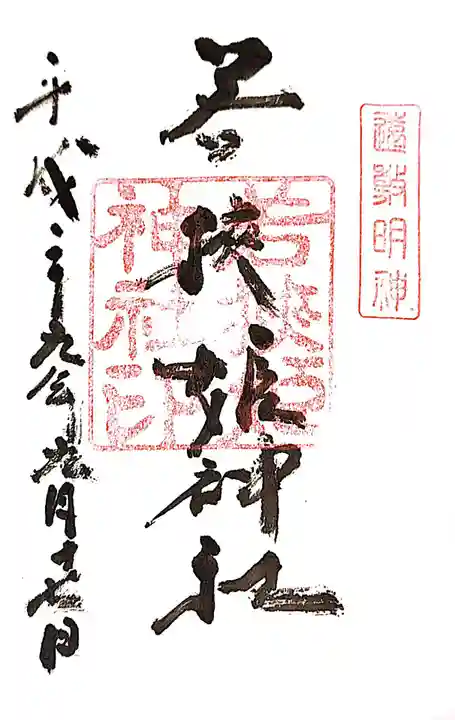 遠敷明神
若狭姫神社
若狭姫
神社印
平成二十九年九月十七日